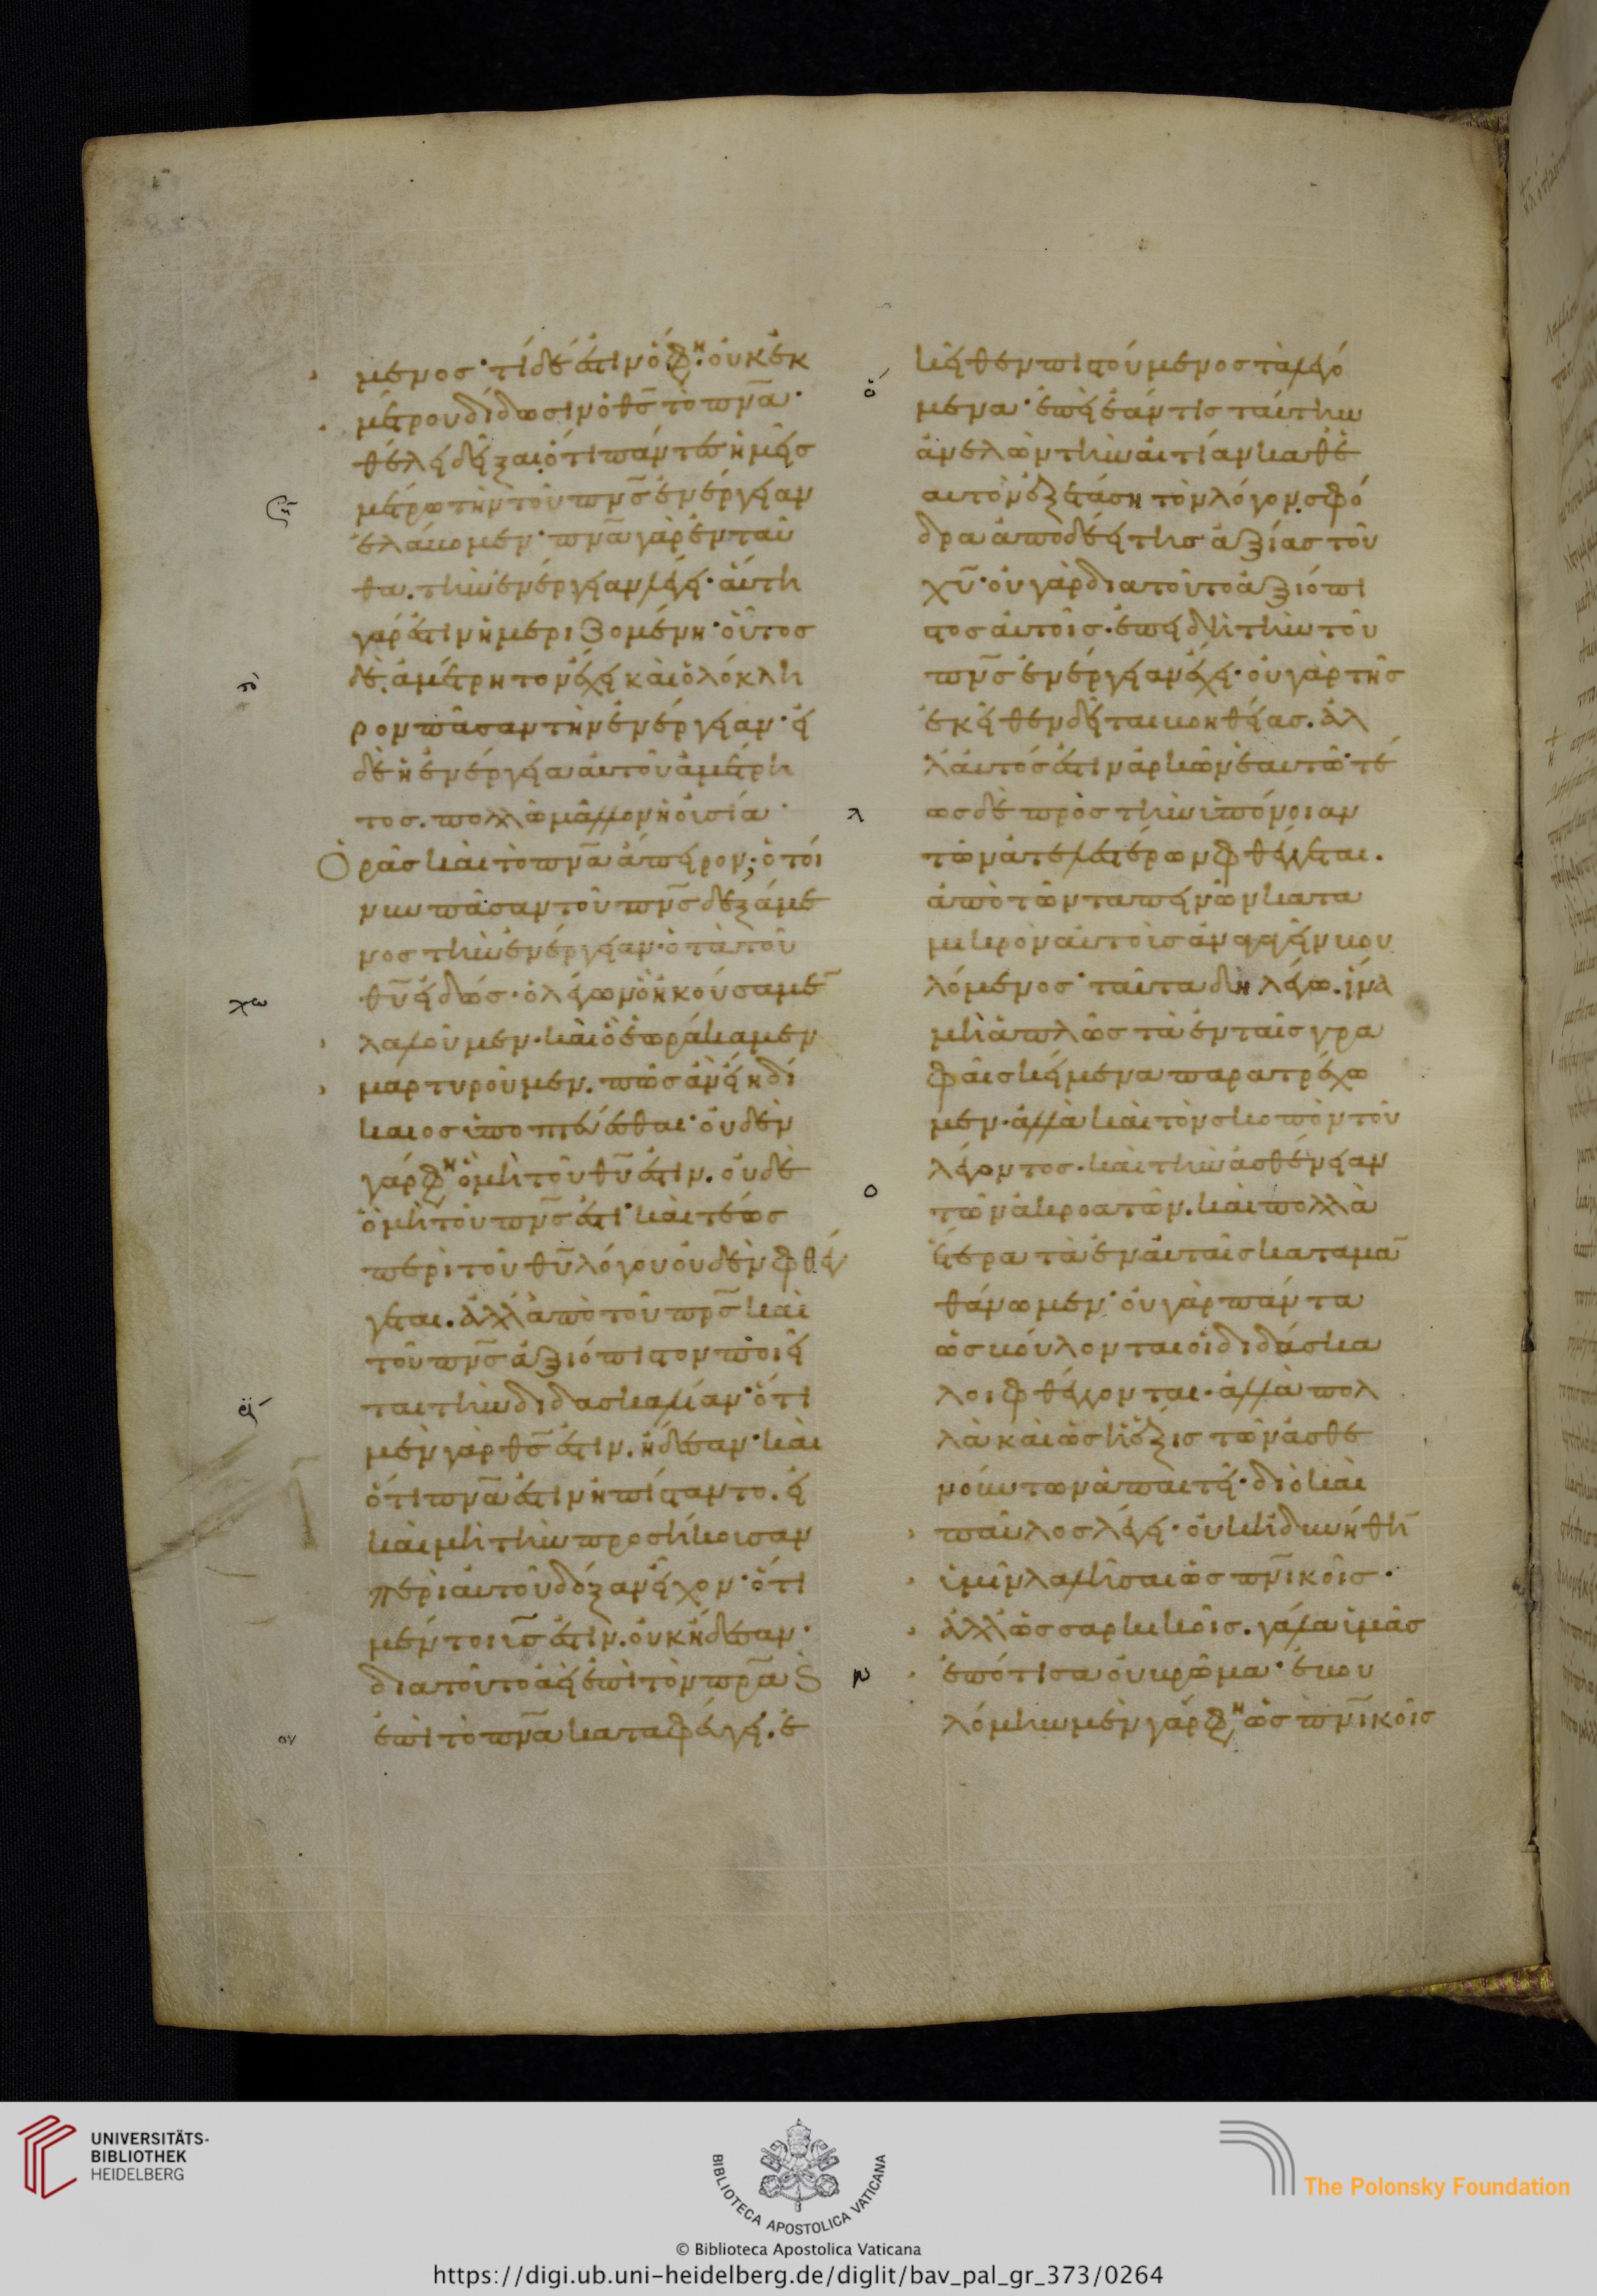 μενος· τί δέ ἐστιν ὅ φη(σιν)· οὐκ ἐκ
μέτρου δίδωσιν ὁ θς̅ τὸ πνα̅·
θέλει δεῖξαι ὅτι πάντες ἡμεῖς
μέτρω τὴν τοῦ πνς̅ ἐνέργειαν
ἐλάβομεν· πνα̅ γὰρ ἐνταῦ
θα. τὴν ἐνέργειαν λέγει· αὕτη
γάρ ἐστιν ἡ μεριζομένη· οὗτος
δὲ. ἀμέτρητον ἔχει καὶ ὁλόκλη
ρον πᾶσαν τὴν ἐνέργειαν· εἰ
δὲ ἡ ἐνέργεια αὐτοῦ ἀμέτρη
τος. πολλῷ μᾶλλον ἡ οὐσία·
Ὁρᾶς καὶ τὸ πνα̅ ἄπειρον; ὁ τοί
νυν πᾶσαν τοῦ πνς̅ δεξάμε
νος τὴν ἐνέργειαν· ὁ τὰ τοῦ
θυ̅ εἰδώς· ὁ λέγων ὃ ἠκούσαμε̅
λαλοῦμεν· καὶ ὃ ἑωράκαμεν
μαρτυροῦμεν. πῶς ἂν εἴη δί
καιος ὑποπτεύεσθαι· οὐδὲν
γάρ φη(σιν) ὃ μὴ τοῦ θυ̅ ἐστιν. οὐδὲ
ὃ μὴ τοῦ πνς̅ ἐστι· καὶ τέως
περὶ τοῦ θυ̅ λόγου οὐδὲν φθέγ
γεται. ἀλλ᾽ ἀπὸ τοῦ πρς̅ καὶ
τοῦ πνς̅ ἀξιόπιστον ποιεῖ
ται τὴν διδασκαλίαν· ὅτι
μὲν γὰρ θς̅ ἐστιν. ἤδεσαν· καὶ
ὅτι πνα̅ ἐστιν ἠπίσταντο. εἰ
καὶ μὴ τὴν προσήκουσαν
περὶ αὐτοῦ δόξαν εἶχον· ὅτι
μέντοι υς̅ ἐστιν. οὐκ ἤδεσαν·
διὰ τοῦτο ἀεὶ ἐπὶ τὸν πρα̅ ϗ
ἐπὶ τὸ πνα̅ καταφεύγει. ἐ
κεῖθεν πιστούμενος τὰ λεγό
μενα· ἐπεὶ ἐάν τις ταύτην
ἀνελὼν τὴν αἰτίαν καθ᾽ ἑ
αυτὸν ἐξετάση τὸν λόγον. σφό
δρα ἀποδέει τῆς ἀξίας τοῦ
χυ̅· οὐ γὰρ διὰ τοῦτο ἀξιόπι
στος αὐτοῖς· ἐπειδὴ τὴν τοῦ
πνς̅ ἐνέργειαν ἔχει· οὐ γὰρ τῆς
ἐκεῖθεν δεῖται βοηθείας. ἀλ
λ᾽ αὐτός ἐστιν ἀρκῶν ἑαυτῶ· τέ
ως δὲ πρὸς τὴν ὑπόνοιαν
τῶν ἀτελεστέρων φθέγγεται.
ἀπὸ τῶν ταπεινῶν κατα
μικρὸν αὐτοὺς ἀναγαγεῖν βου
λόμενος· ταῦτα δὴ λέγω. ἵνα
μὴ ἁπλῶς τὰ ἐν ταῖς γρα
φαῖς κείμενα παρατρέχω
μεν· ἀλλὰ καὶ τὸν σκοπὸν τοῦ
λέγοντος· καὶ τὴν ἀσθένειαν
τῶν ἀκροατῶν. καὶ πολλὰ
ἕτερα τὰ ἐν αὐταῖς καταμα̅
θάνωμεν· οὐ γὰρ πάντα
ὡς βούλονται οἱ διδάσκα
λοι φθέγγονται· ἀλλὰ πολ
λὰ καὶ ὡς ἡ ἕξις τῶν ἀσθε
νούντων ἀπαιτεῖ· διὸ καὶ
παῦλος λέγει· οὐκ ἠδυνήθη̅
ὑμῖν λαλῆσαι ὡς πν̅ικοῖς·
ἀλλ᾽ ὡς σαρκικοῖς. γάλα ὑμᾶς
ἐπότισα οὐ βρῶμα· ἐβου
λόμην μὲν γάρ φη(σιν) ὡς πν̅ικοῖς
UNIVERSITÄTS-
BIBLIOTHEK
HEIDELBERG
BIBLIOTECA APOSTOLICA VATICANA
The Polonsky Foundation
© Biblioteca Apostolica Vaticana
https://digi.ub.uni-heidelberg.de/diglit/bav_pal_gr_373/0264